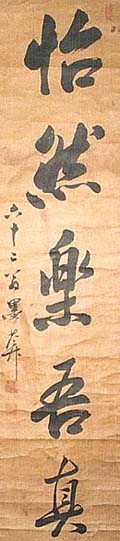 怡然樂吾真
六十三翁墨